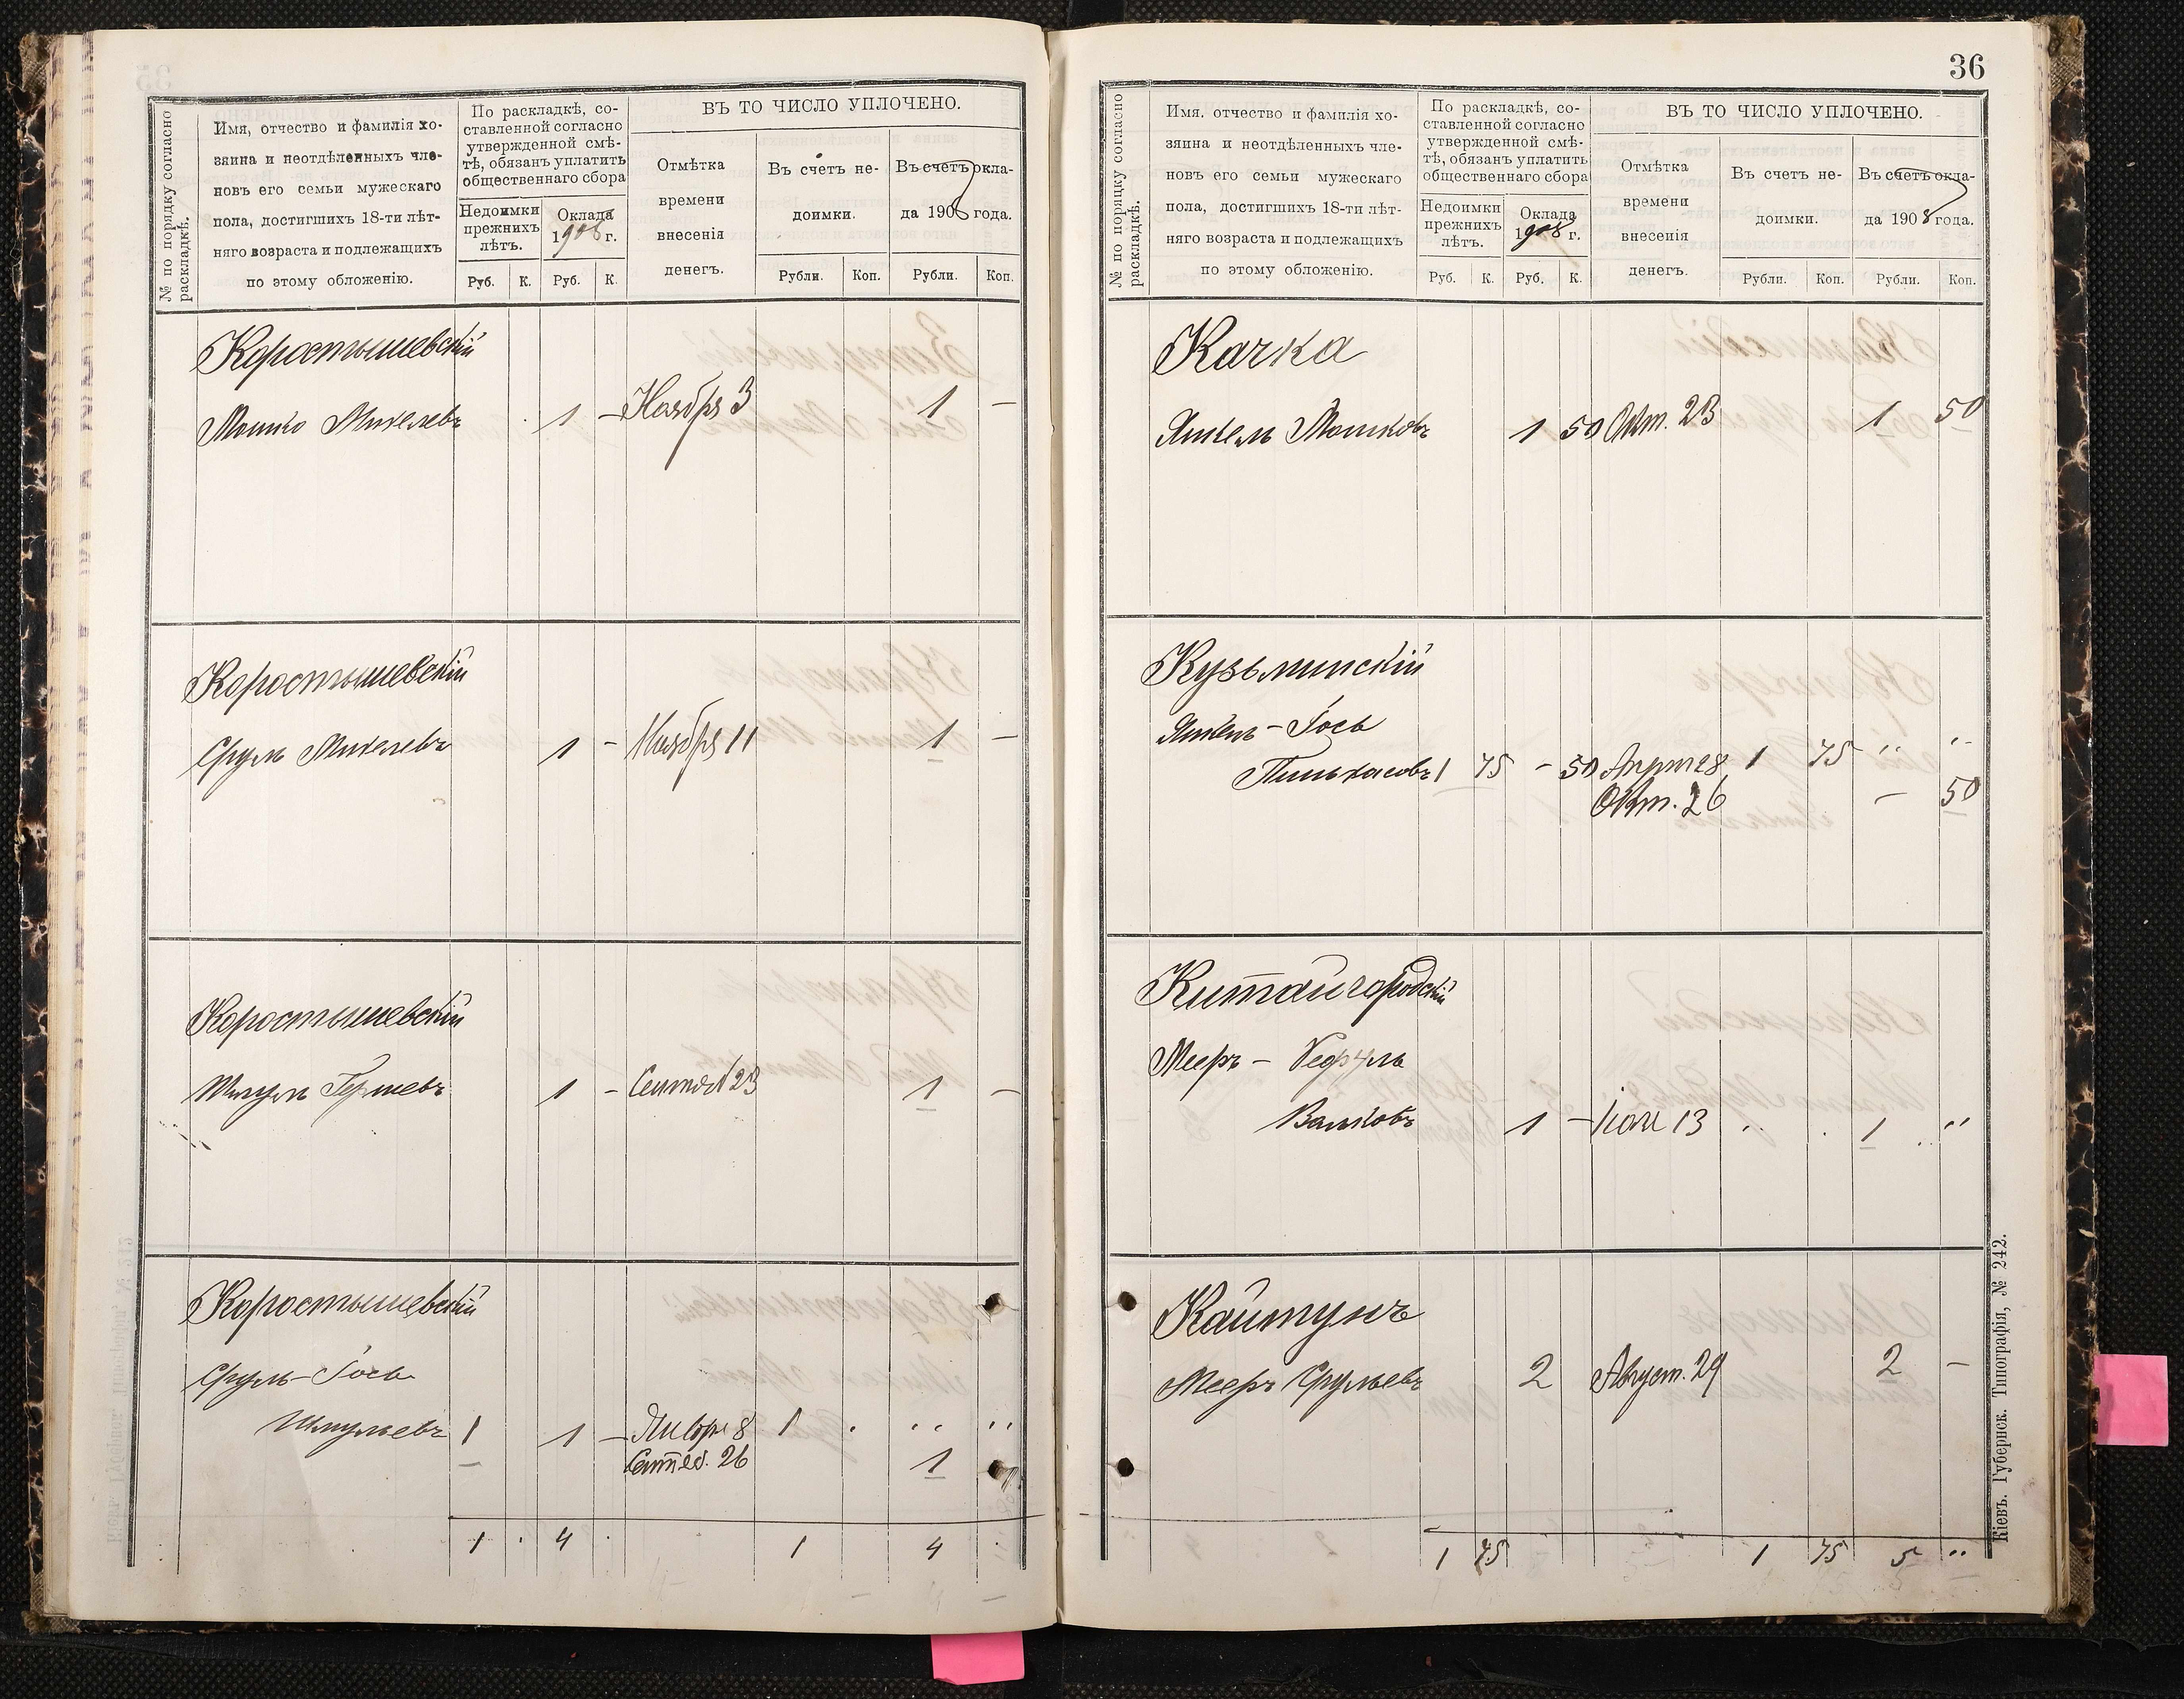 № по порядку согласно
раскладкѣ.
Имя, отчество и фамилія хо-
зяина и неотдѣленныхъ чле-
новъ его семьи мужескаго
пола, достигшихъ 18-ти лѣт-
няго возраста и подлежащихъ
по этому обложенію.
По раскладкѣ, со-
ставленной согласно
утвержденной смѣ-
тѣ, обязанъ уплатить
общественнаго сбора
Недоимки
прежнихъ
лѣтъ.
Оклада
1908 г.
Руб. К. Руб. К.
ВЪ ТО ЧИСЛО УПЛОЧЕНО.
Отмѣтка
времени
внесенія
денегъ.
Въ счетъ не-
доимки.
Въ счетъ окла-
да 1908 года.
Рубли. Коп. Рубли. Коп.
Коростышевскій
Мошко Микелевъ 1 — Ноября 3 1 —
Коростышевскій
Сруль Микелевъ 1 — Ноября 11 1 —
Коростышевскій
Шмуль Гершевъ 1 — Сентяб 23 1 —
Коростышевскій
Сруль-Іось
Шмульевъ 1 1 — Январ 8 1 . ,, ,,
— Сентяб. 26 1
1 . 4 . 1 4 .
36
№ по порядку согласно
раскладкѣ.
Имя, отчество и фамилія хо-
зяина и неотдѣленныхъ чле-
новъ его семьи мужескаго
пола, достигшихъ 18-ти лѣт-
няго возраста и подлежащихъ
по этому обложенію.
По раскладкѣ, со-
ставленной согласно
утвержденной смѣ-
тѣ, обязанъ уплатить
общественнаго сбора
Недоимки
прежнихъ
лѣтъ.
Оклада
1908 г.
Руб. К. Руб. К.
ВЪ ТО ЧИСЛО УПЛОЧЕНО.
Отмѣтка
времени
внесенія
денегъ.
Въ счетъ не-
доимки.
Въ счетъ окла-
да 1908 года.
Рубли. Коп. Рубли. Коп.
Качка
Янкель Мошковъ 1 50 Окт. 23 1 50
Кузьминскій
Янкель-Іось
Пинькасовъ 1 75 — 50 Апрл 28 1 75 ,, ,,
Окт. 26 — 50
Китайгородскій
Мееръ-
Валковъ 1 — 13 ,, . 1 ,,
Кайтунъ
Мееръ Срульевъ 2 Август. 29 2 —
1 75 1 75 5 ,,
Кіевъ. Губернск. Типографія, № 242.